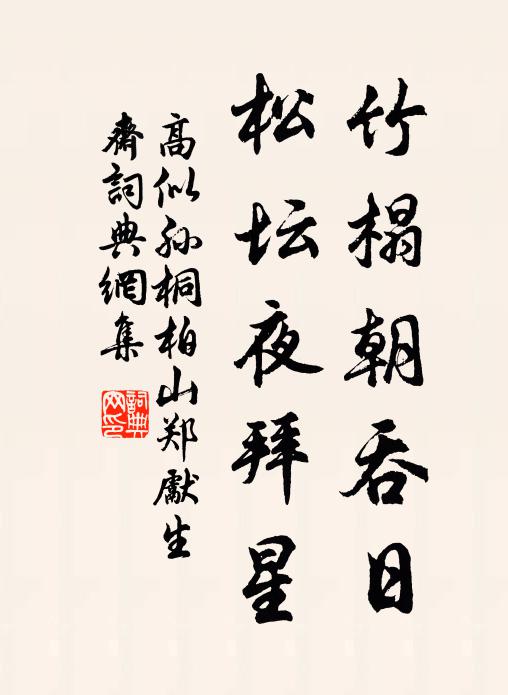 竹榻朝吞日
松坛夜拜星
高似孙桐柏山郑獻生
齋詞典網集
詞典
网印